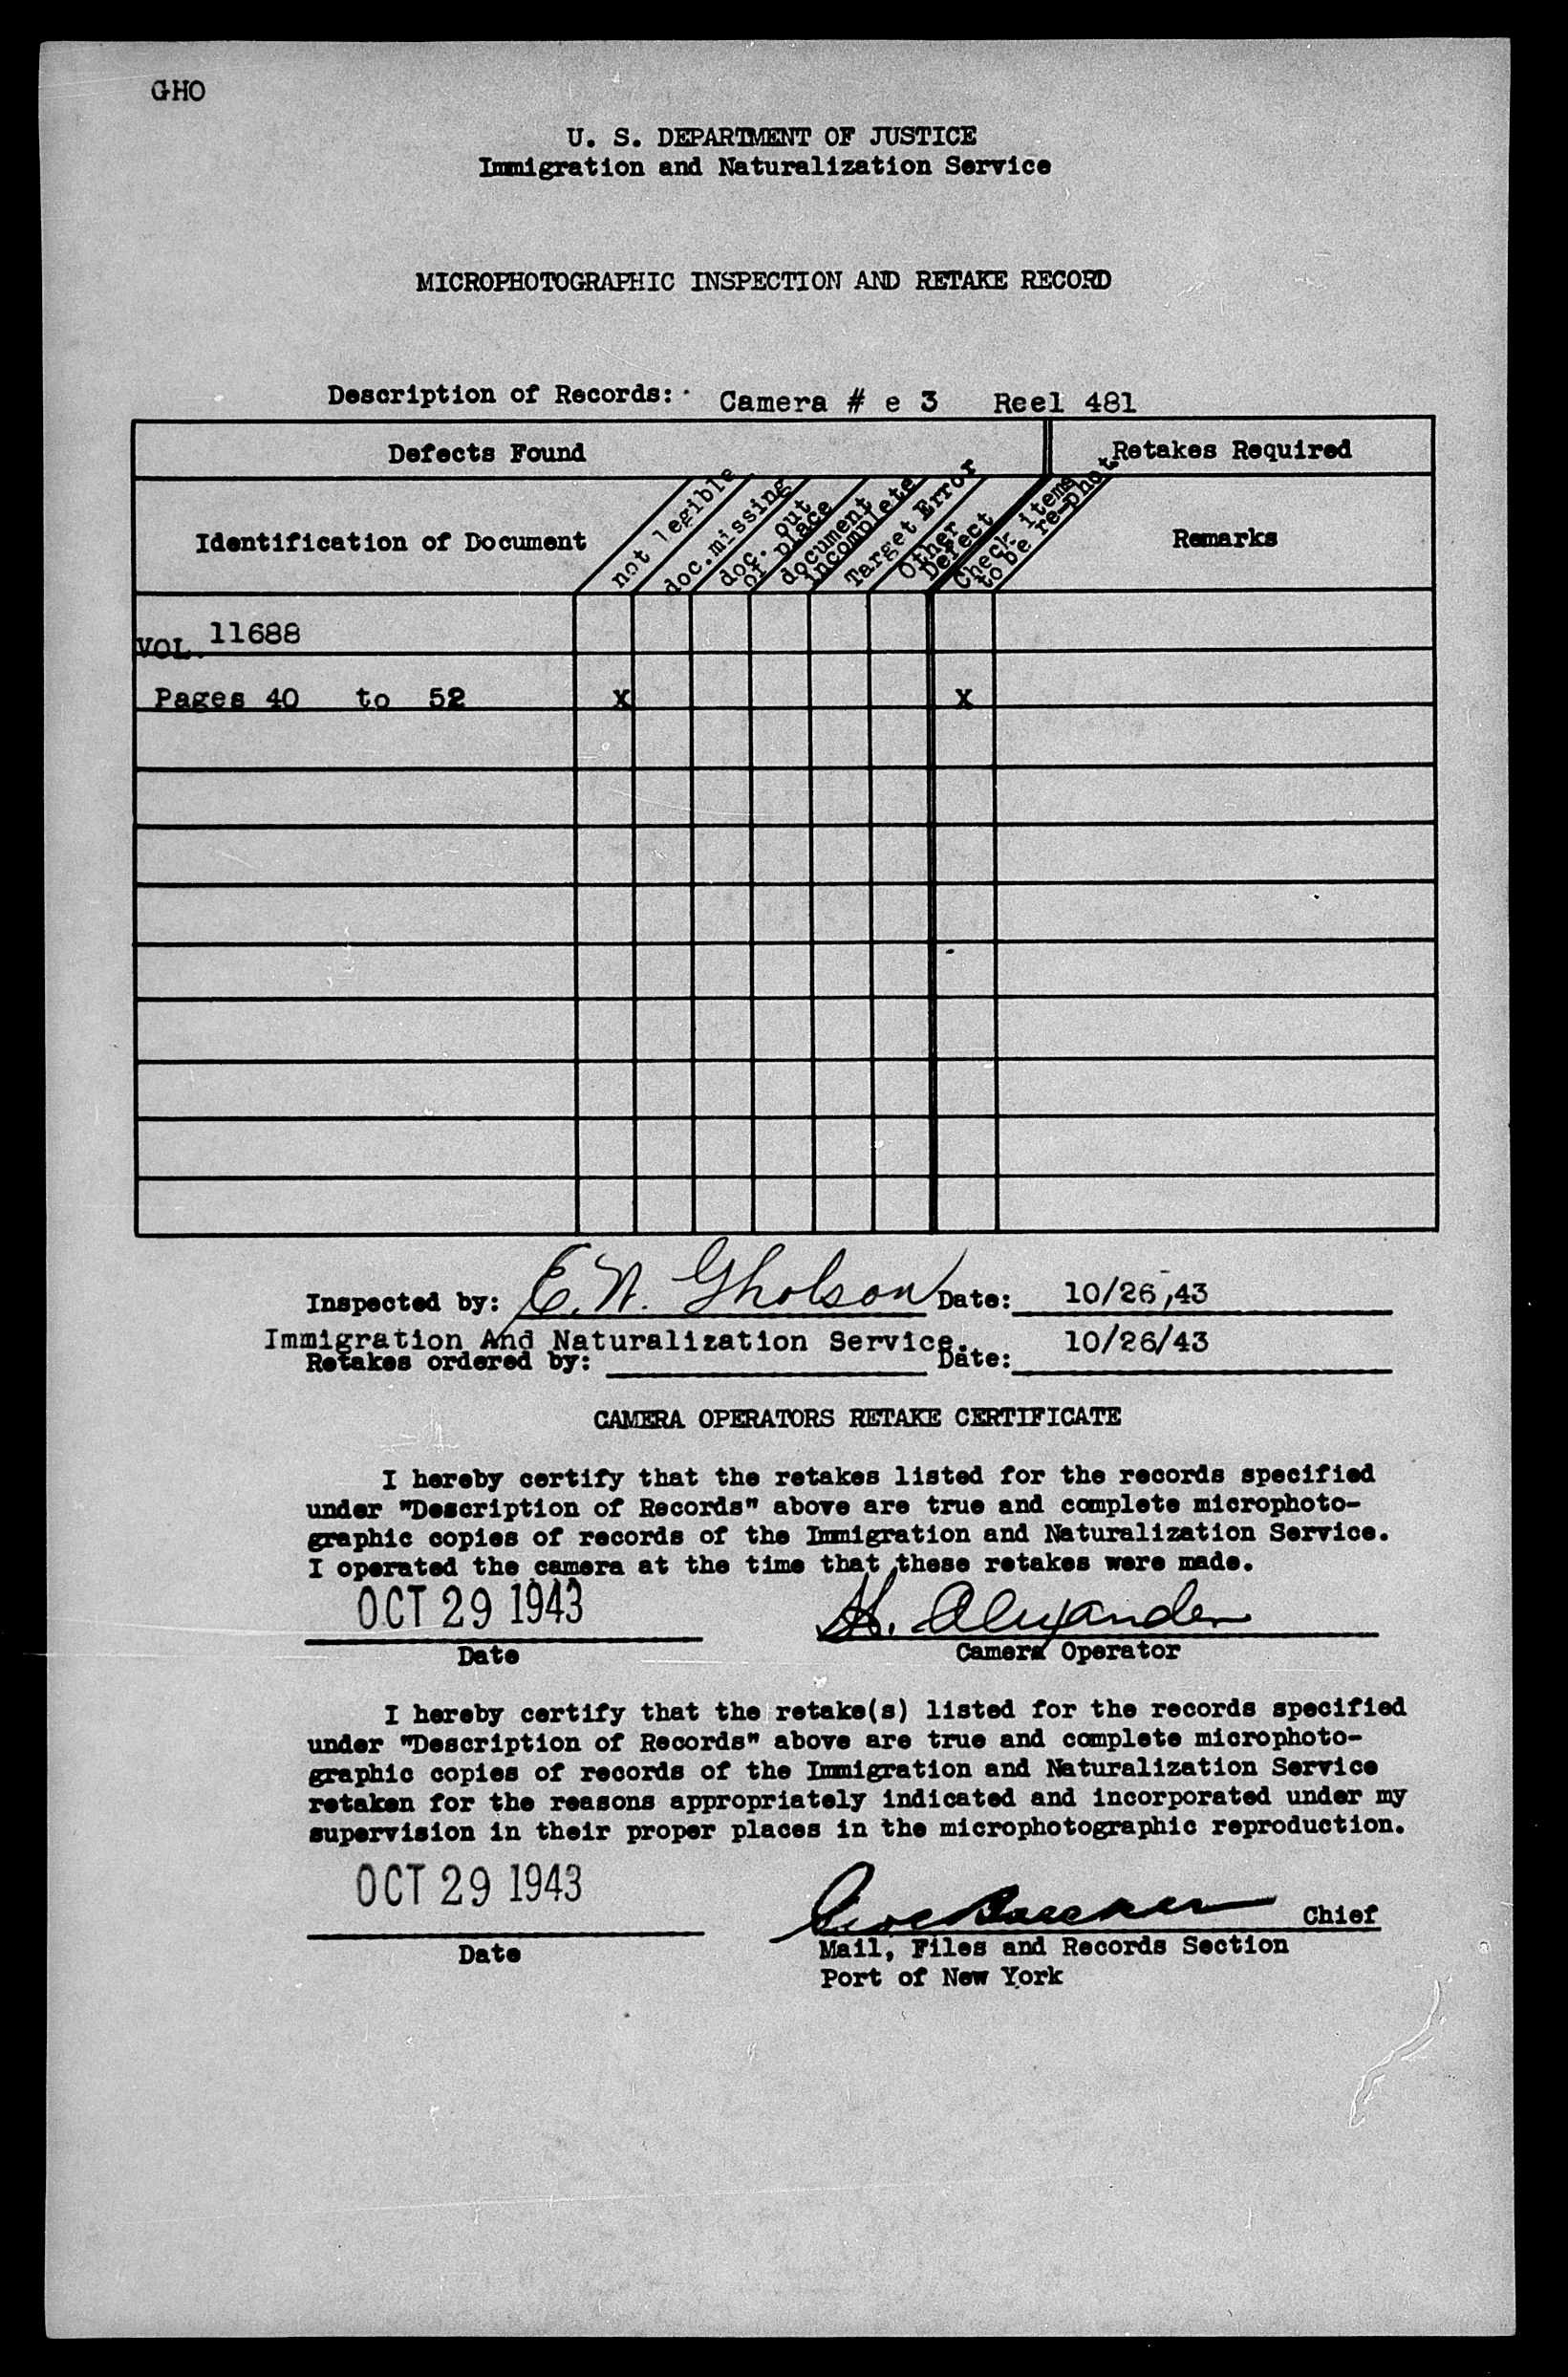 GHO
U. S. DEPARTMENT OF JUSTICE
Immigration and Naturalization Service
MICROPHOTOGRAPHIC INSPECTION AND RETAKE RECORD
Description of Records: Camera # e 3 Reel 481
Defects Found
Retakes Required
Identification of Document
not legible
doc.missing
doc. out
of place
document
incomplete
Target Error
Other
Defect
Check items
to be re-phot
Remarks
VOL. 11688
Pages 40 to 52 X X
Inspected by: E. N. Gholson Date: 10/26,43
Immigration And Naturalization Service. 10/26/43
Retakes ordered by: Date:
CAMERA OPERATORS RETAKE CERTIFICATE
I hereby certify that the retakes listed for the records specified
under "Description of Records" above are true and complete microphoto-
graphic copies of records of the Immigration and Naturalization Service.
I operated the camera at the time that these retakes were made.
OCT 29 1943 H. Alexander
Date Camera Operator
I hereby certify that the retake(s) listed for the records specified
under "Description of Records" above are true and complete microphoto-
graphic copies of records of the Immigration and Naturalization Service
retaken for the reasons appropriately indicated and incorporated under my
supervision in their proper places in the microphotographic reproduction.
OCT 29 1943
Chief
Date Mail, Files and Records Section
Port of New York